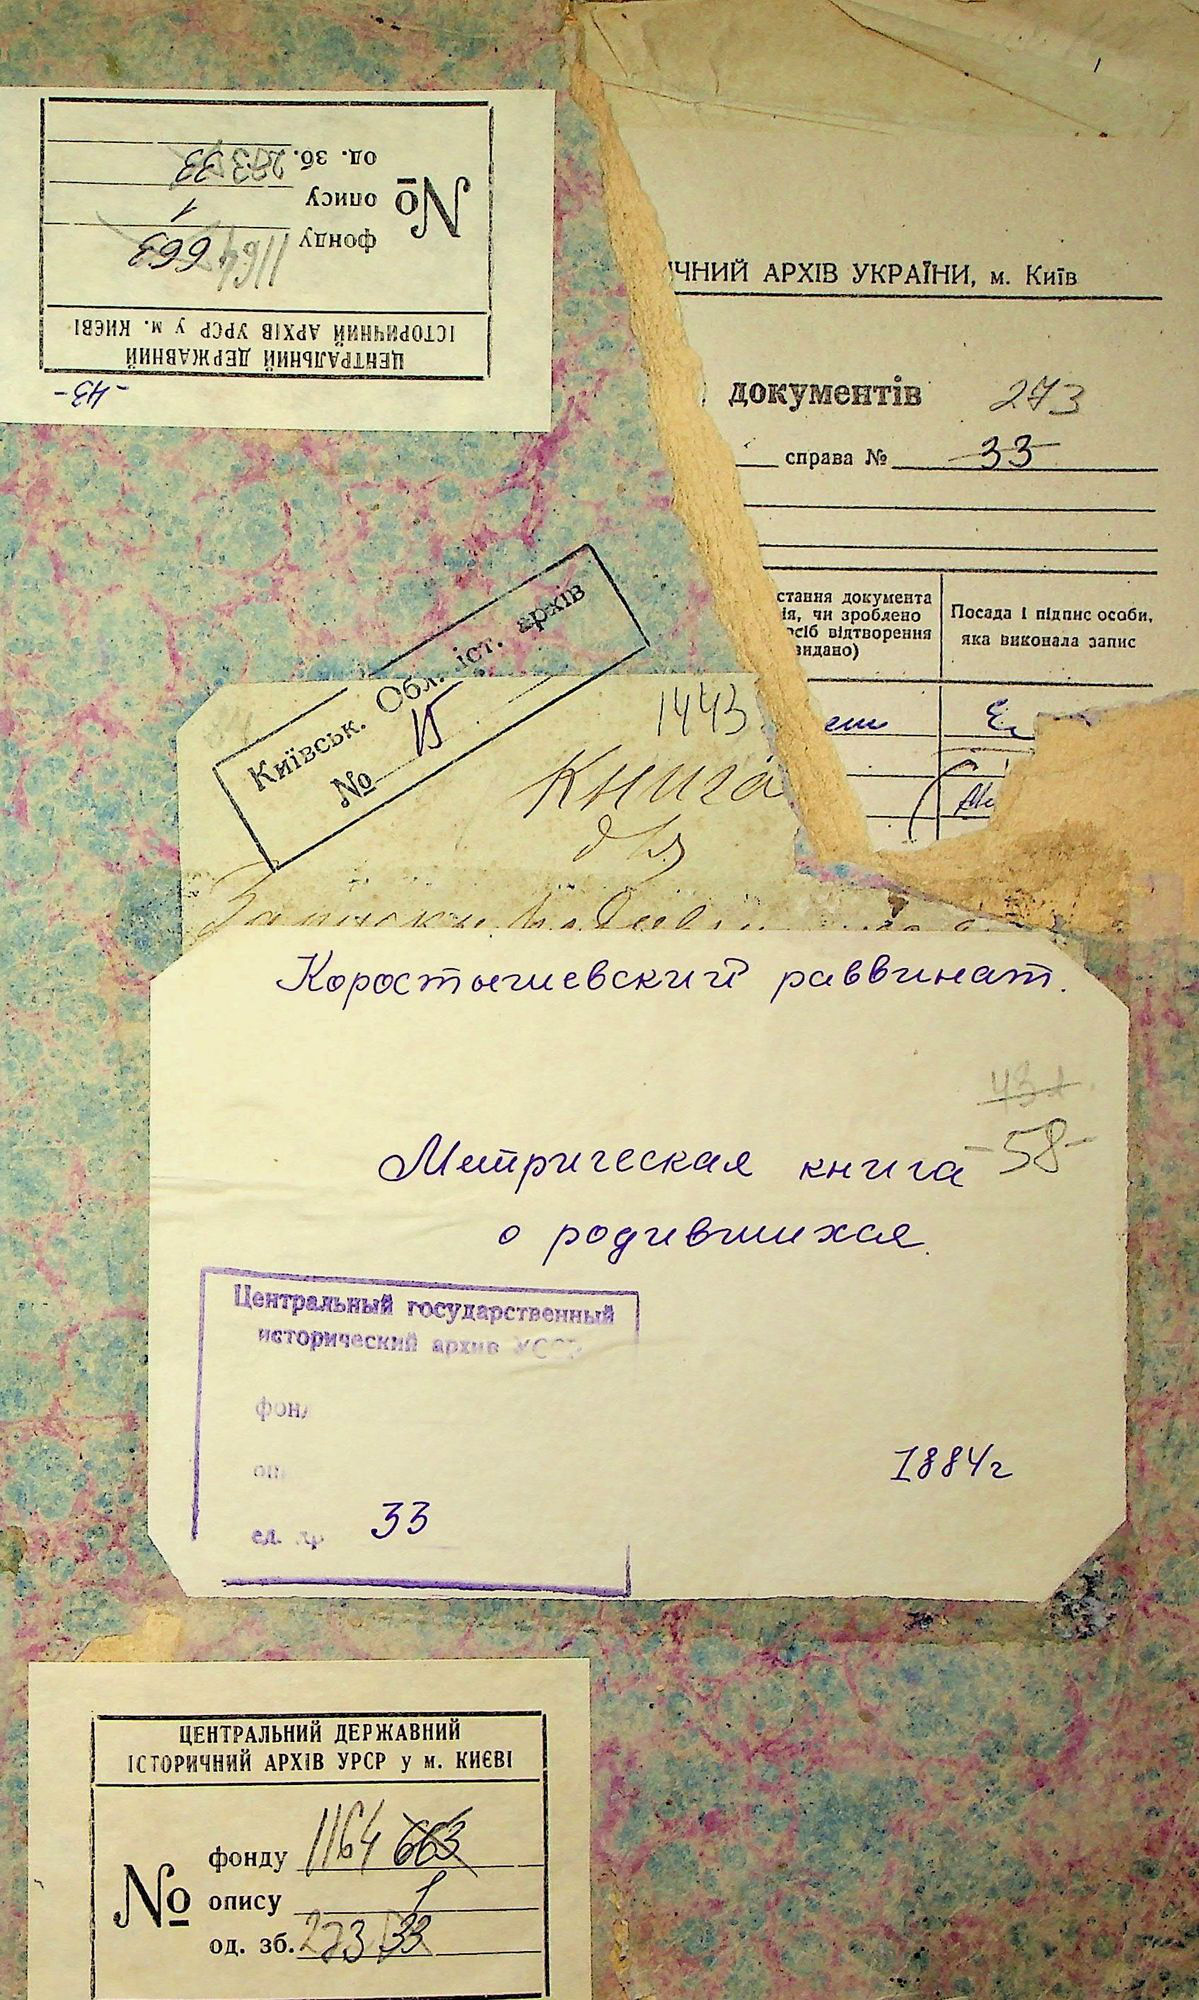 ЦЕНТРАЛЬНИЙ ДЕРЖАВНИЙ
ІСТОРИЧНИЙ АРХІВ УРСР у м. КИЄВІ
№
фонду 1164 663
опису 1
од. зб. 273 33
-43-
ИЧНИЙ АРХІВ УКРАЇНИ, м. Київ
документів 273
справа № 33
стання документа
ія, чи зроблено
осіб відтворення
видано)
Посада і підпис особи,
яка виконала запис
Київськ. Обл. іст. архів
№ 15
1443
Книга
для
Записки
Коростышевский раввинат.
43
-58-
Метрическая книга
о родившихся.
Центральный государственный
исторический архив УССР
фонд
оп
ед. хр 33
1884г
ЦЕНТРАЛЬНИЙ ДЕРЖАВНИЙ
ІСТОРИЧНИЙ АРХІВ УРСР у м. КИЄВІ
№
фонду 1164 663
опису 1
од. зб. 273 33